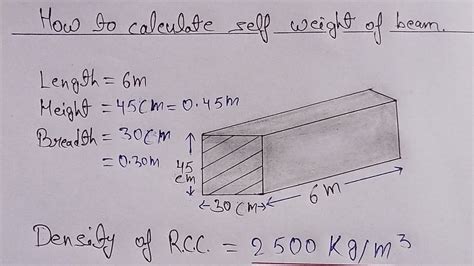 How to calculate self weight of beam.
Length = 6m
Height = 45cm = 0.45m
Breadth = 30cm
= 0.30m
45
cm
30cm
6m
Density of R.C.C. = 2500 Kg/m³